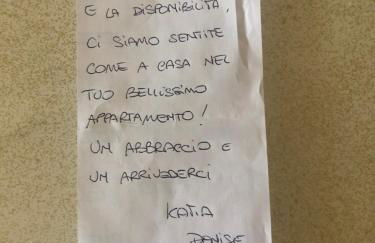 E LA DISPONIBILITÀ,
CI SIAMO SENTITE
COME A CASA NEL
TUO BELLISSIMO
APPARTAMENTO!
UN ABBRACCIO E
UN ARRIVEDERCI
KATIA
DENISE